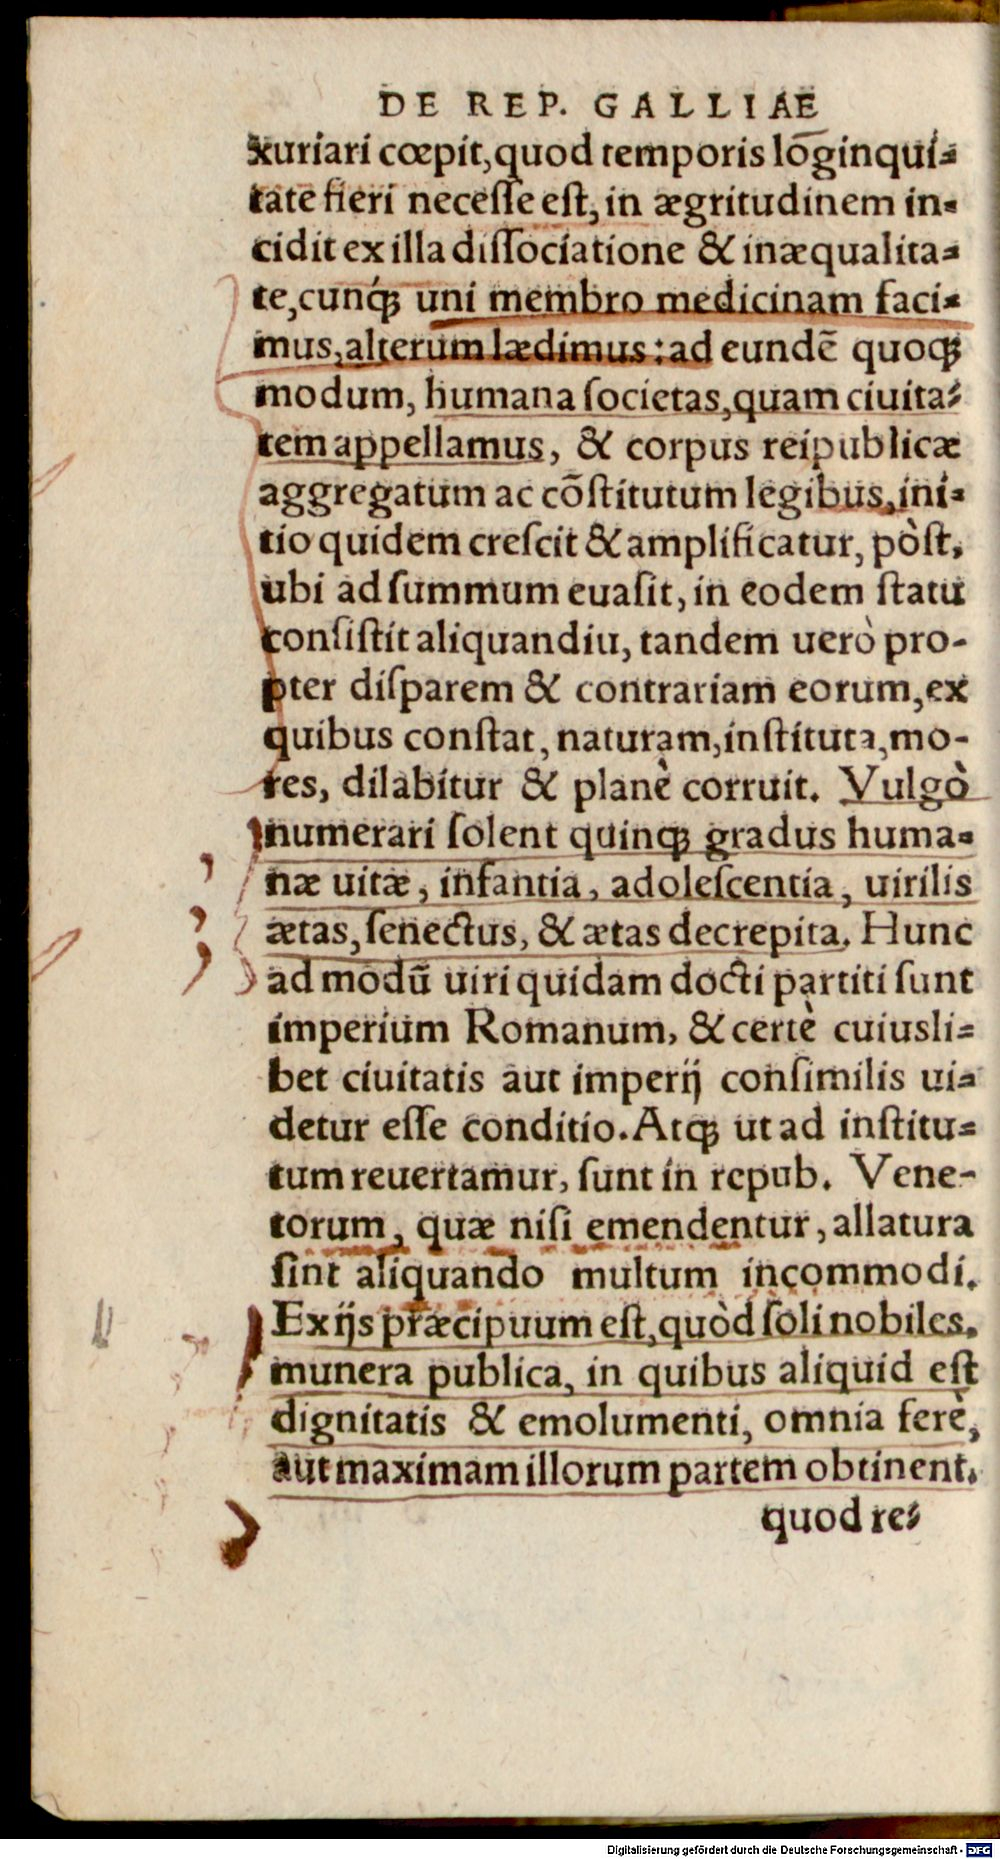 DE REP. GALLIAE
xuriari cœpit, quod temporis lõginqui-
tate fieri necesſe eſt, in ægritudinem in-
cidit ex illa diſſociatione & inæqualita-
te, cunq́ꝫ uni membro medicinam faci-
mus, alterum lædimus: ad eundẽ quoqꝫ
modum, humana ſocietas, quam ciuita-
tem appellamus, & corpus reipublicæ
aggregatum ac cõſtitutum legibus, ini-
tio quidem creſcit & amplificatur, pòſt,
ubi ad ſummum euaſit, in eodem ſtatu
conſiſtit aliquandiu, tandem uerò pro-
pter diſparem & contrariam eorum, ex
quibus conſtat, naturam, inſtituta, mo-
res, dilabitur & planè corruit. Vulgò
numerari ſolent quinqꝫ gradus huma-
næ uitæ, infantia, adoleſcentia, uirilis
ætas, ſenectus, & ætas decrepita. Hunc
ad modũ uiri quidam docti partiti ſunt
imperium Romanum, & certè cuiusli-
bet ciuitatis aut imperij conſimilis ui-
detur eſſe conditio. Atqꝫ ut ad inſtitu-
tum reuertamur, ſunt in repub. Vene-
torum, quæ niſi emendentur, allatura
ſint aliquando multum incommodi.
Ex ijs præcipuum eſt, quòd ſoli nobiles,
munera publica, in quibus aliquid eſt
dignitatis & emolumenti, omnia ferè,
aut maximam illorum partem obtinent.
quod re-
Digitalisierung gefördert durch die Deutsche Forschungsgemeinschaft - DFG